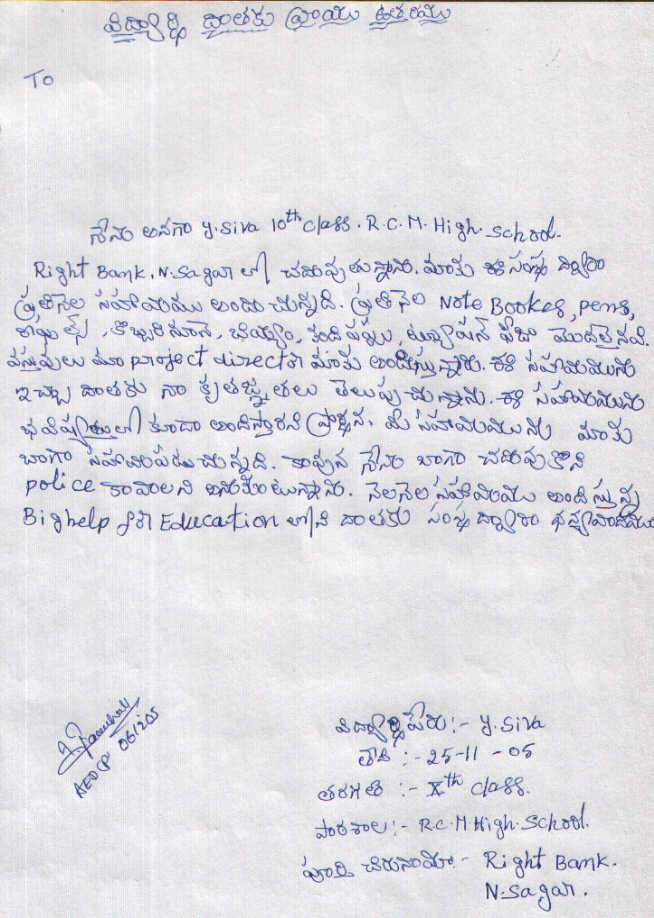 విద్యార్థి దాతకు వ్రాయు ఉత్తరము
To
నేను అనగా Y. Siva 10th class. R.C.M. High. School.
Right Bank, N. Sagar లో చదువుతున్నాను. మాకు ఈ సంస్థ ద్వారా
ప్రతినెల సహాయము అందుచున్నది. ప్రతి నెల Note Bookes, pens,
కొబ్బరి నూనె, బియ్యం, కంది పప్పు, ట్యూషన్ ఫీజు మొదలైనవి.
వస్తువులు మా project director మాకు అందిస్తున్నారు. ఈ సహాయమును
ఇచ్చు దాతకు నా కృతజ్ఞతలు తెలుపుచున్నాను. ఈ సహాయమును
భవిష్యత్తులో కూడా అందిస్తారని ప్రార్థన. మీ సహాయమును మాకు
బాగా సహాయపడుచున్నది. కావున నేను బాగా చదువుకొని
police కావాలని అనుకుంటున్నాను. నెలనెల సహాయము అందిస్తున్న
Bighelp for Education లోని దాతకు సంస్థ ద్వారా ధన్యవాదములు
విద్యార్థి పేరు :- Y. Siva
తేది :- 25-11-05
తరగతి :- Xth class.
పాఠశాల :- R.C.M High. School.
పూర్తి చిరునామా - Right Bank.
N. Sagar.
AEDP 061205